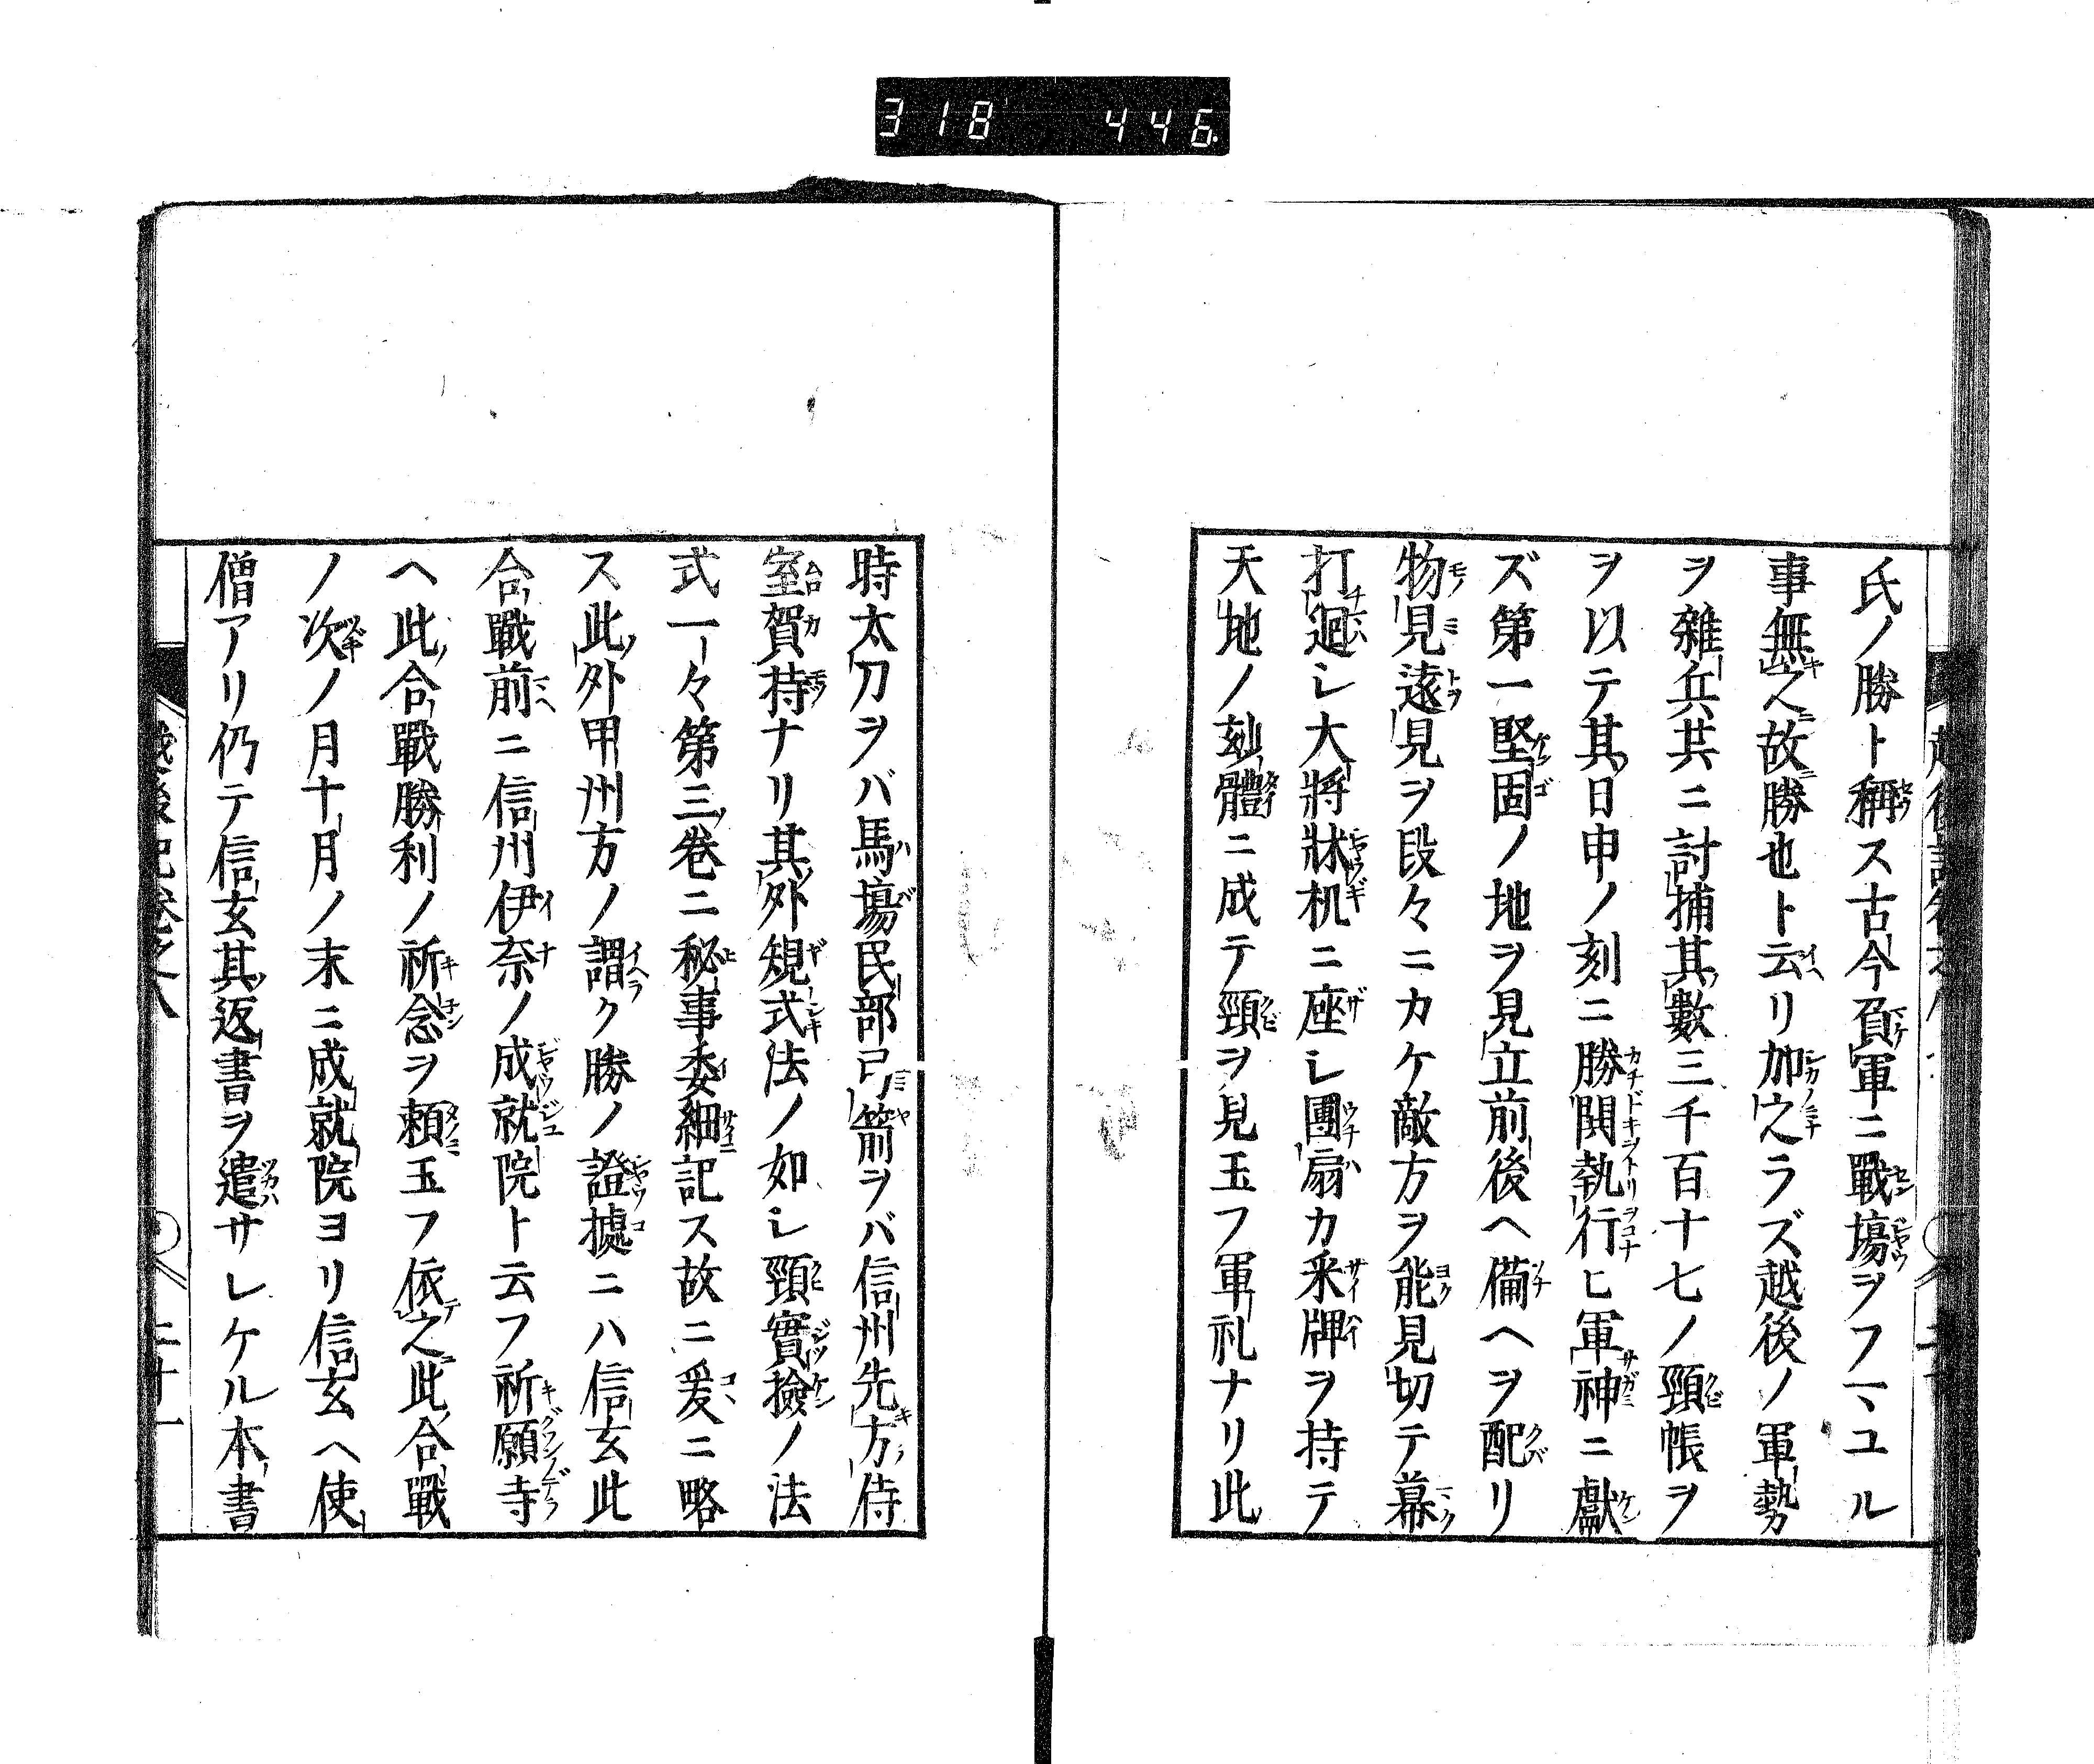 318 446
氏ノ勝ト稱ス古今負軍ニ戰塲ヲフマユル
事無之故勝也ト云リ加之ラズ越後ノ軍勢
ヲ雜兵共ニ討捕其數三千百十七ノ頸帳ヲ
ヲ以テ其日申ノ刻ニ勝鬨執行ヒ軍神ニ獻
ズ第一堅固ノ地ヲ見立前後ヘ備ヘヲ配リ
物見遠見ヲ段々ニカケ敵方ヲ能見切テ幕
打廻シ大將牀机ニ座シ團扇カ釆牌ヲ持テ
天地ノ刻體ニ成テ頸ヲ見玉フ軍礼ナリ此
時太刀ヲバ馬塲民部弓箭ヲバ信州先方侍
室賀持ナリ其外規式法ノ如シ頸實撿ノ法
式一々第三卷ニ秘事委細記ス故ニ爰ニ略
ス此外甲州方ノ謂ク勝ノ證據ニハ信玄此
合戰前ニ信州伊奈ノ成就院ト云フ祈願寺
ヘ此合戰勝利ノ祈念ヲ頼玉フ依之此合戰
ノ次ノ月十月ノ末ニ成就院ヨリ信玄ヘ使
僧アリ仍テ信玄其返書ヲ遣サレケル本書